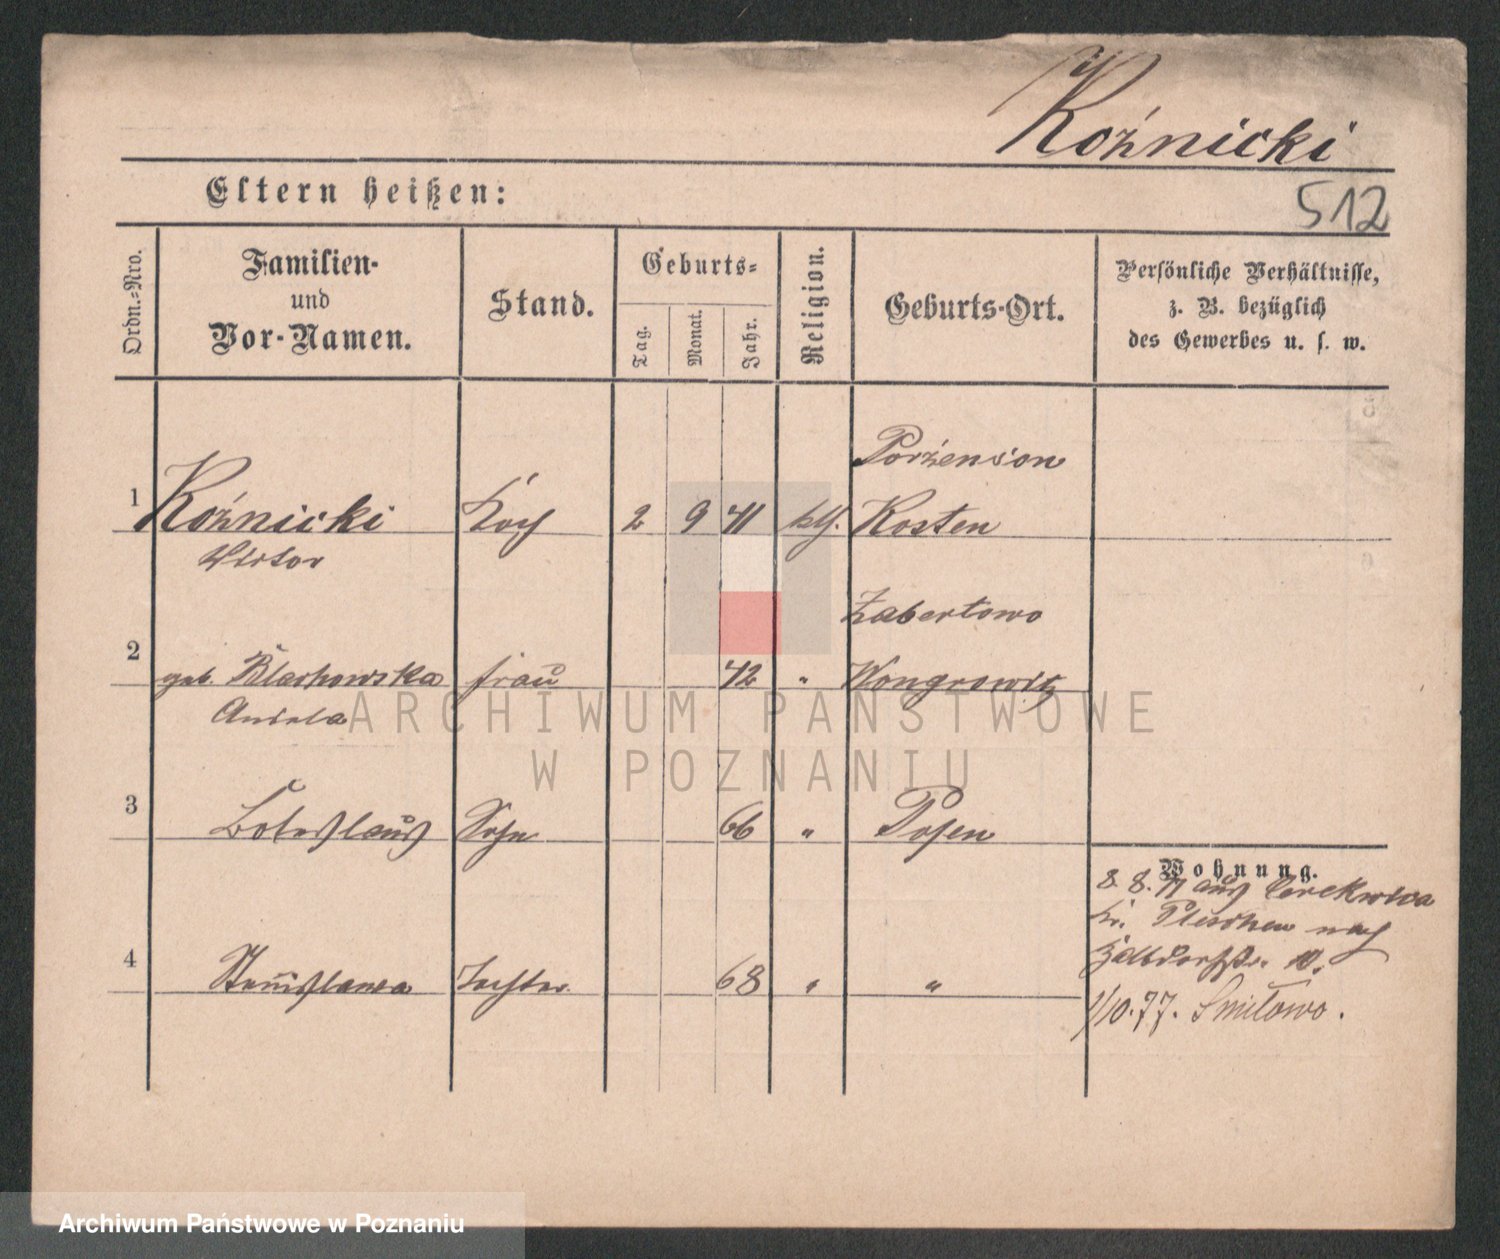 Koźnicki
Eltern heißen:
512
Ordn.-Nro.
Familien-
und
Vor-Namen.
Stand.
Geburts-
Tag.
Monat.
Jahr.
Religion.
Geburts-Ort.
Persönliche Verhältnisse,
z. B. bezüglich
des Gewerbes u. s. w.
1 Koźnicki Koch 2 9 41 kth. Kosten
Victor
Zabertowo
2 geb. Blachowska Frau 42 " Wongrowitz
Aniela
3 Boleslaus Sohn 66 " Posen
Wohnung.
8. 8. 77 aus Cerekwica
Kr. Pleschen nach
4 Stanislawa Tochter 68 " "
Halbdorfstr. 10.
1/10.77. Smiłowo.
ARCHIWUM PAŃSTWOWE
W POZNANIU
Archiwum Państwowe w Poznaniu